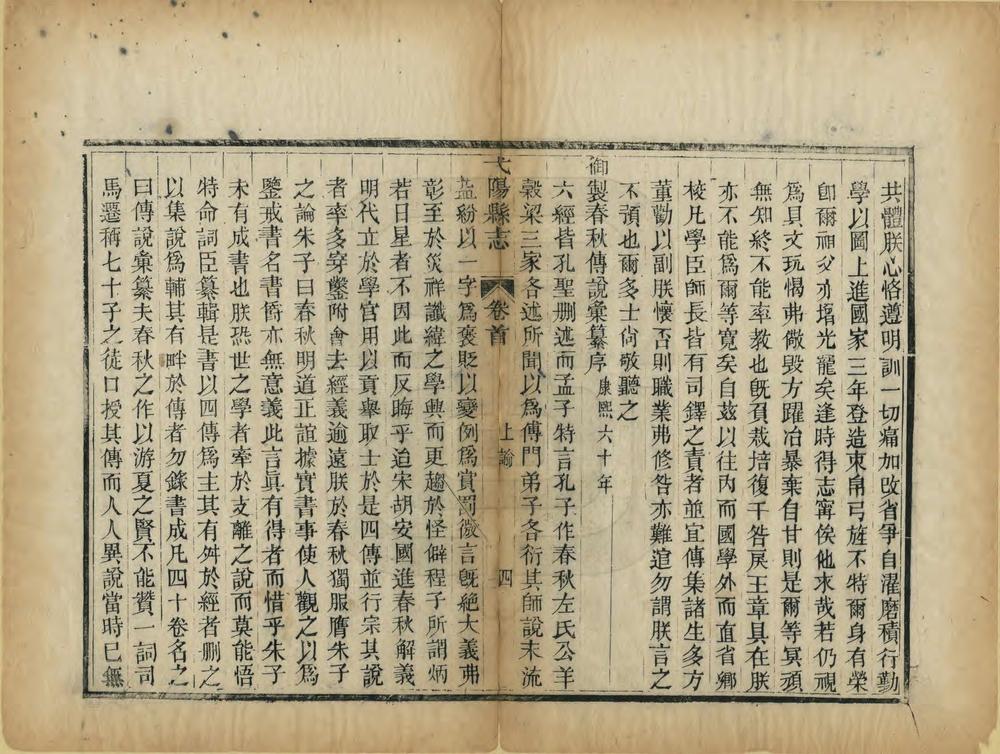 共體朕心恪遵明訓一切痛加改省爭自濯磨積行勤
學以圖上進國家三年登造束帛弓旌不特爾身有榮
卽爾祖父亦增光寵矣逢時得志寧俟他求哉若仍視
爲具文玩愒弗儆毀方躍冶暴棄自甘則是爾等冥頑
無知終不能率敎也旣負栽培復干咎戾王章具在朕
亦不能爲爾等寬矣自兹以往內而國學外而直省鄕
校凡學臣師長皆有司鐸之責者並宜傳集諸生多方
董勸以副朕懷否則職業弗修咎亦難逭勿謂朕言之
不預也爾多士尙敬聽之
御製春秋傳說彙纂序 康熙六十年
六經皆孔聖删述而孟子特言孔子作春秋左氏公羊
穀梁三家各述所聞以爲傳門弟子各衍其師說末流
弋陽縣志 卷首 上諭 四
益紛以一字爲褒貶以變例爲賞罰微言旣絕大義弗
彰至於災祥讖緯之學興而更趨於怪僻程子所謂炳
若日星者不因此而反晦乎迨宋胡安國進春秋解義
明代立於學官用以貢舉取士於是四傳並行宗其說
者率多穿鑿附會去經義逾遠朕於春秋獨服膺朱子
之論朱子曰春秋明道正誼據實書事使人觀之以爲
鑒戒書名書爵亦無意義此言眞有得者而惜乎朱子
未有成書也朕恐世之學者牽於支離之說而莫能悟
特命詞臣纂輯是書以四傳爲主其有舛於經者删之
以集說爲輔其有畔於傳者勿錄書成凡四十卷名之
曰傳說彙纂夫春秋之作以游夏之賢不能贊一詞司
馬遷稱七十子之徒口授其傳而人人異說當時已無